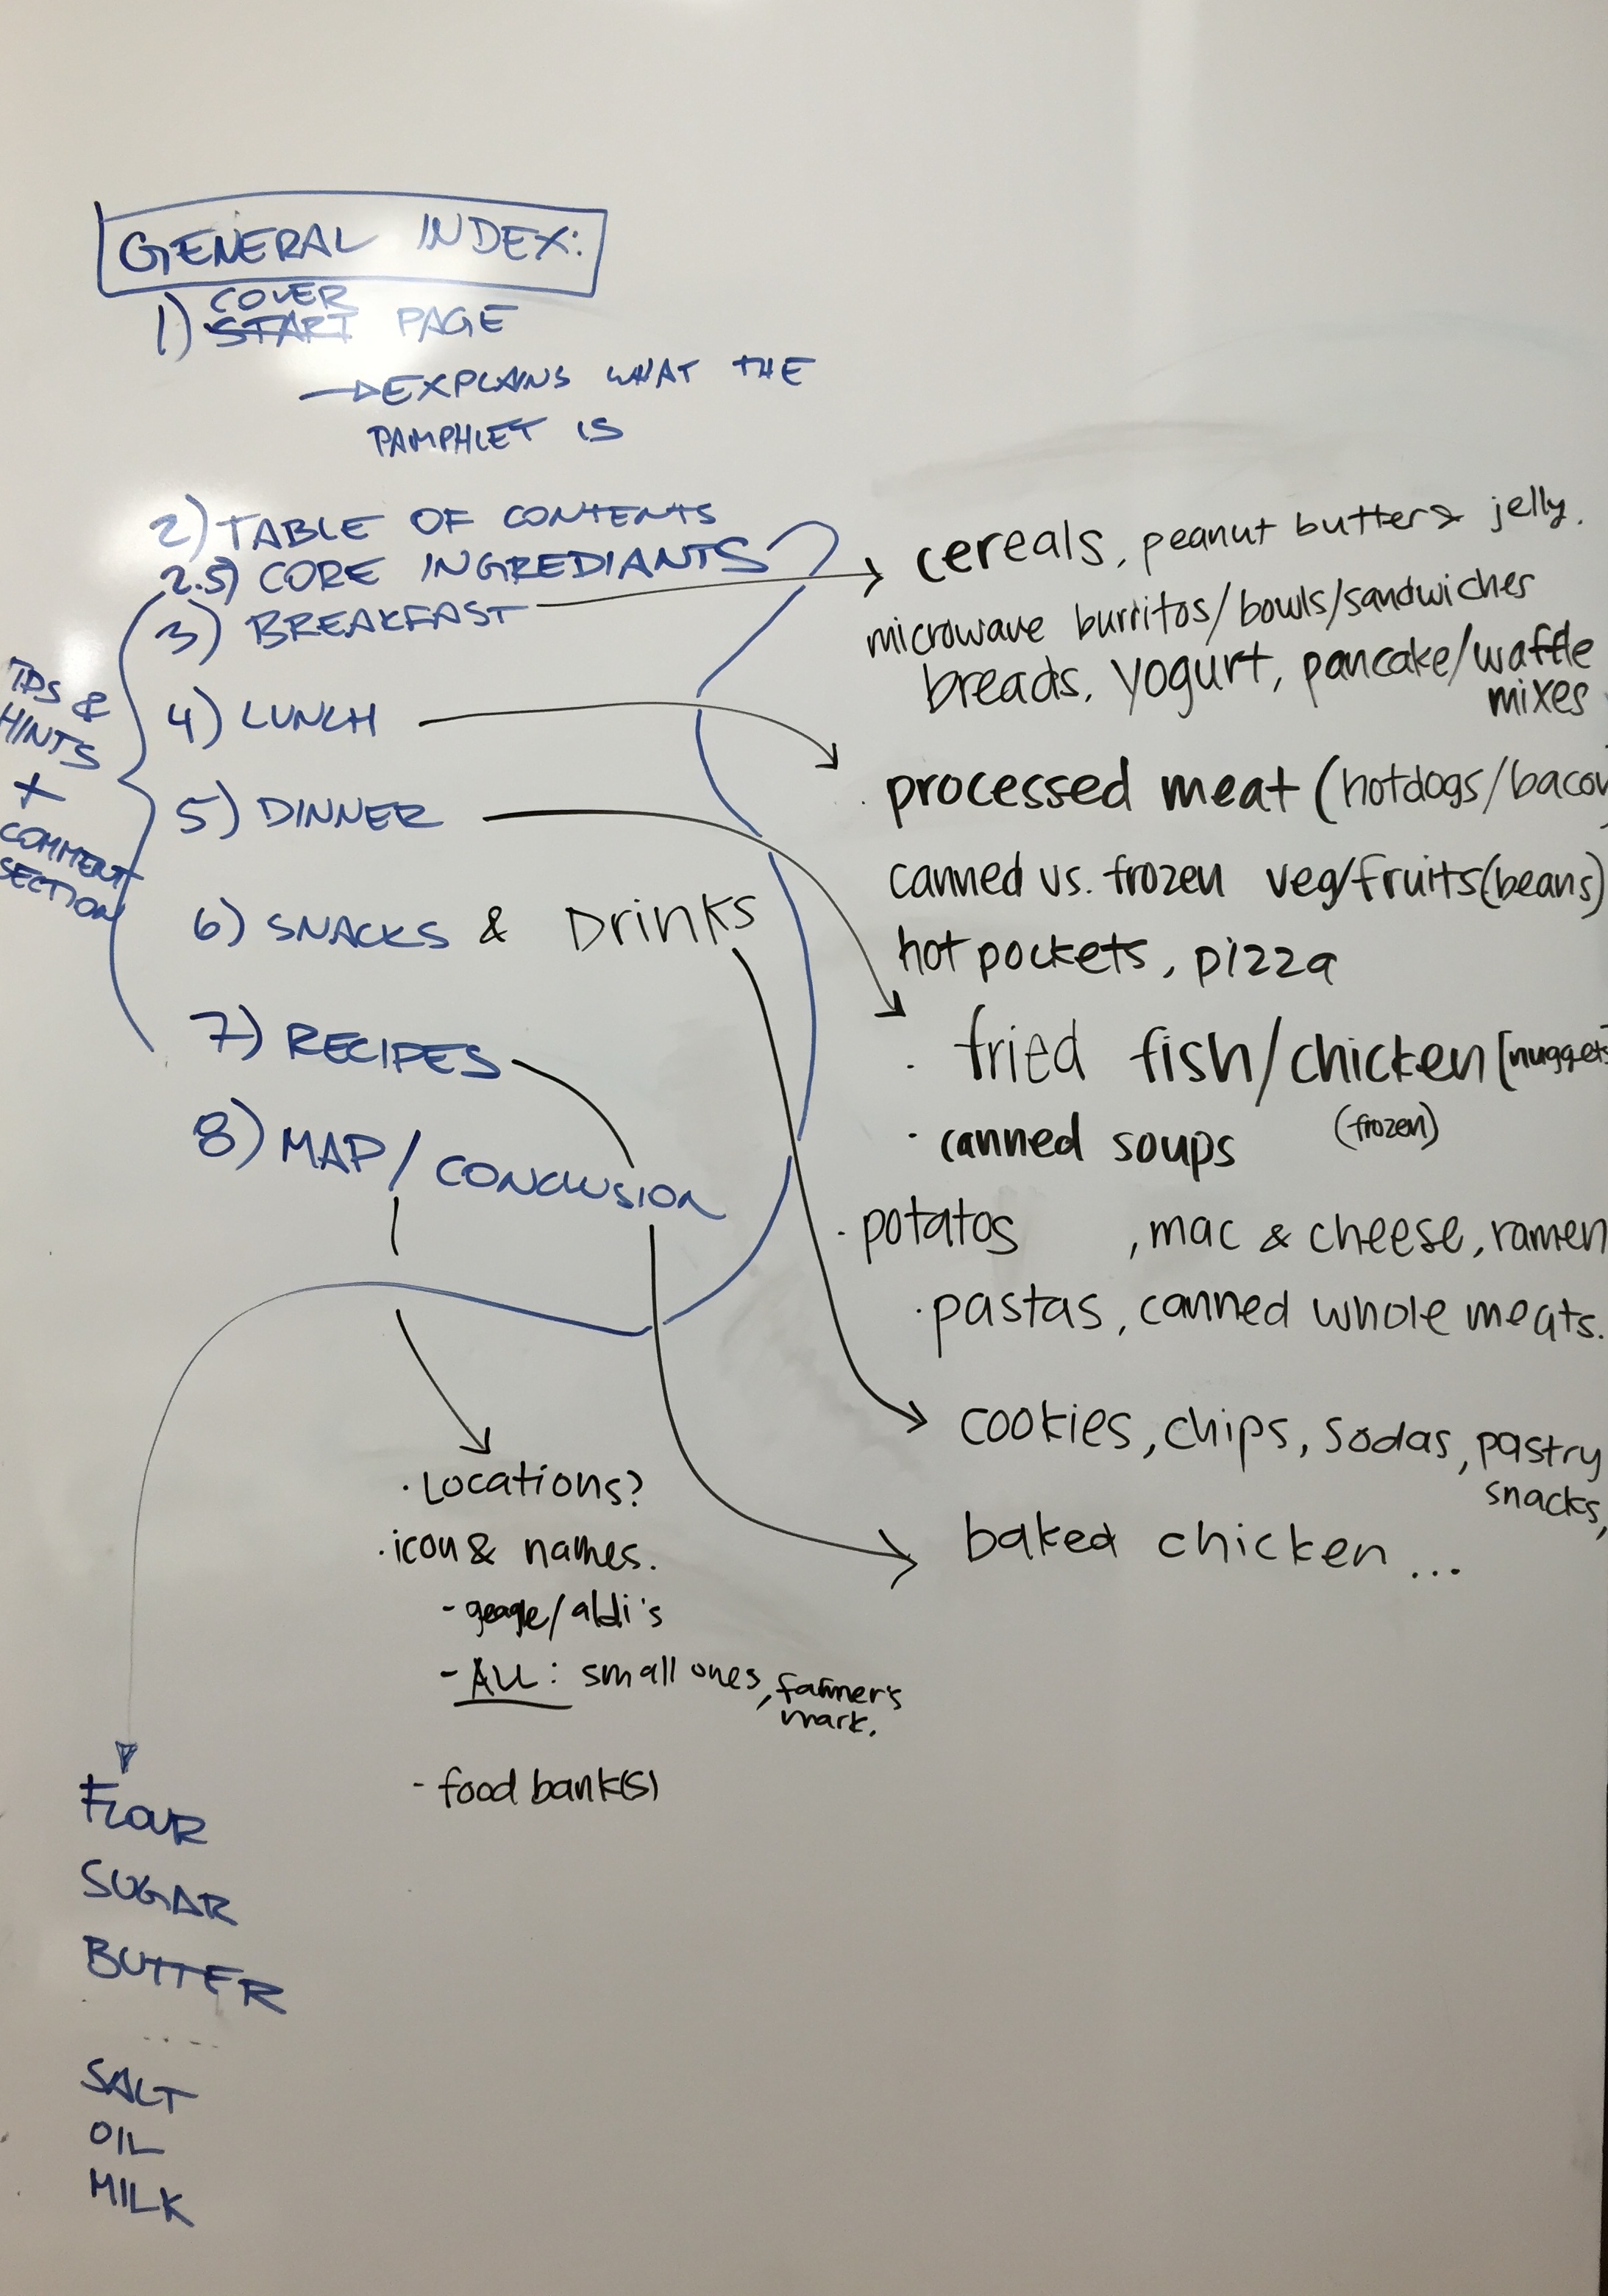 GENERAL INDEX:
COVER
1) START PAGE
EXPLAINS WHAT THE
PAMPHLET IS
2) TABLE OF CONTENTS
2.5) CORE INGREDIANTS
3) BREAKFAST
4) LUNCH
5) DINNER
6) SNACKS & Drinks
7) RECIPES
8) MAP / CONCLUSION
TIPS &
HINTS
+
COMMENT
SECTION
cereals, peanut butter & jelly.
microwave burritos/bowls/sandwiches
breads, yogurt, pancake/waffle
mixes
processed meat (hotdogs/bacon
canned vs. frozen veg/fruits (beans)
hot pockets, pizza
· fried fish/chicken [nuggets
(frozen)
· canned soups
· potatos , mac & cheese, ramen
· pastas, canned whole meats.
cookies, chips, sodas, pastry
snacks,
baked chicken ...
· Locations?
· icon & names.
- /aldi's
- ALL: small ones, farmer's
mark.
- food bank(s)
FLOUR
SUGAR
BUTTER
SALT
OIL
MILK